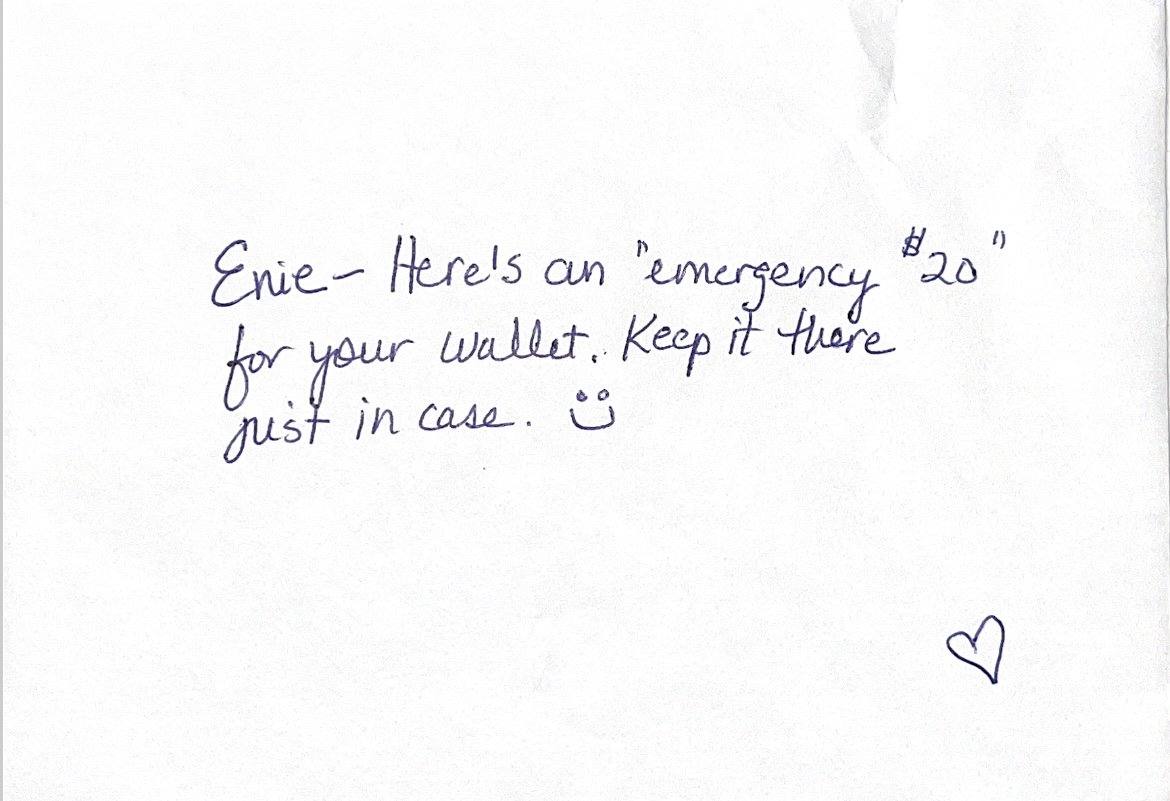 Enie - Here's an "emergency $20"
for your wallet. Keep it there
just in case. :)